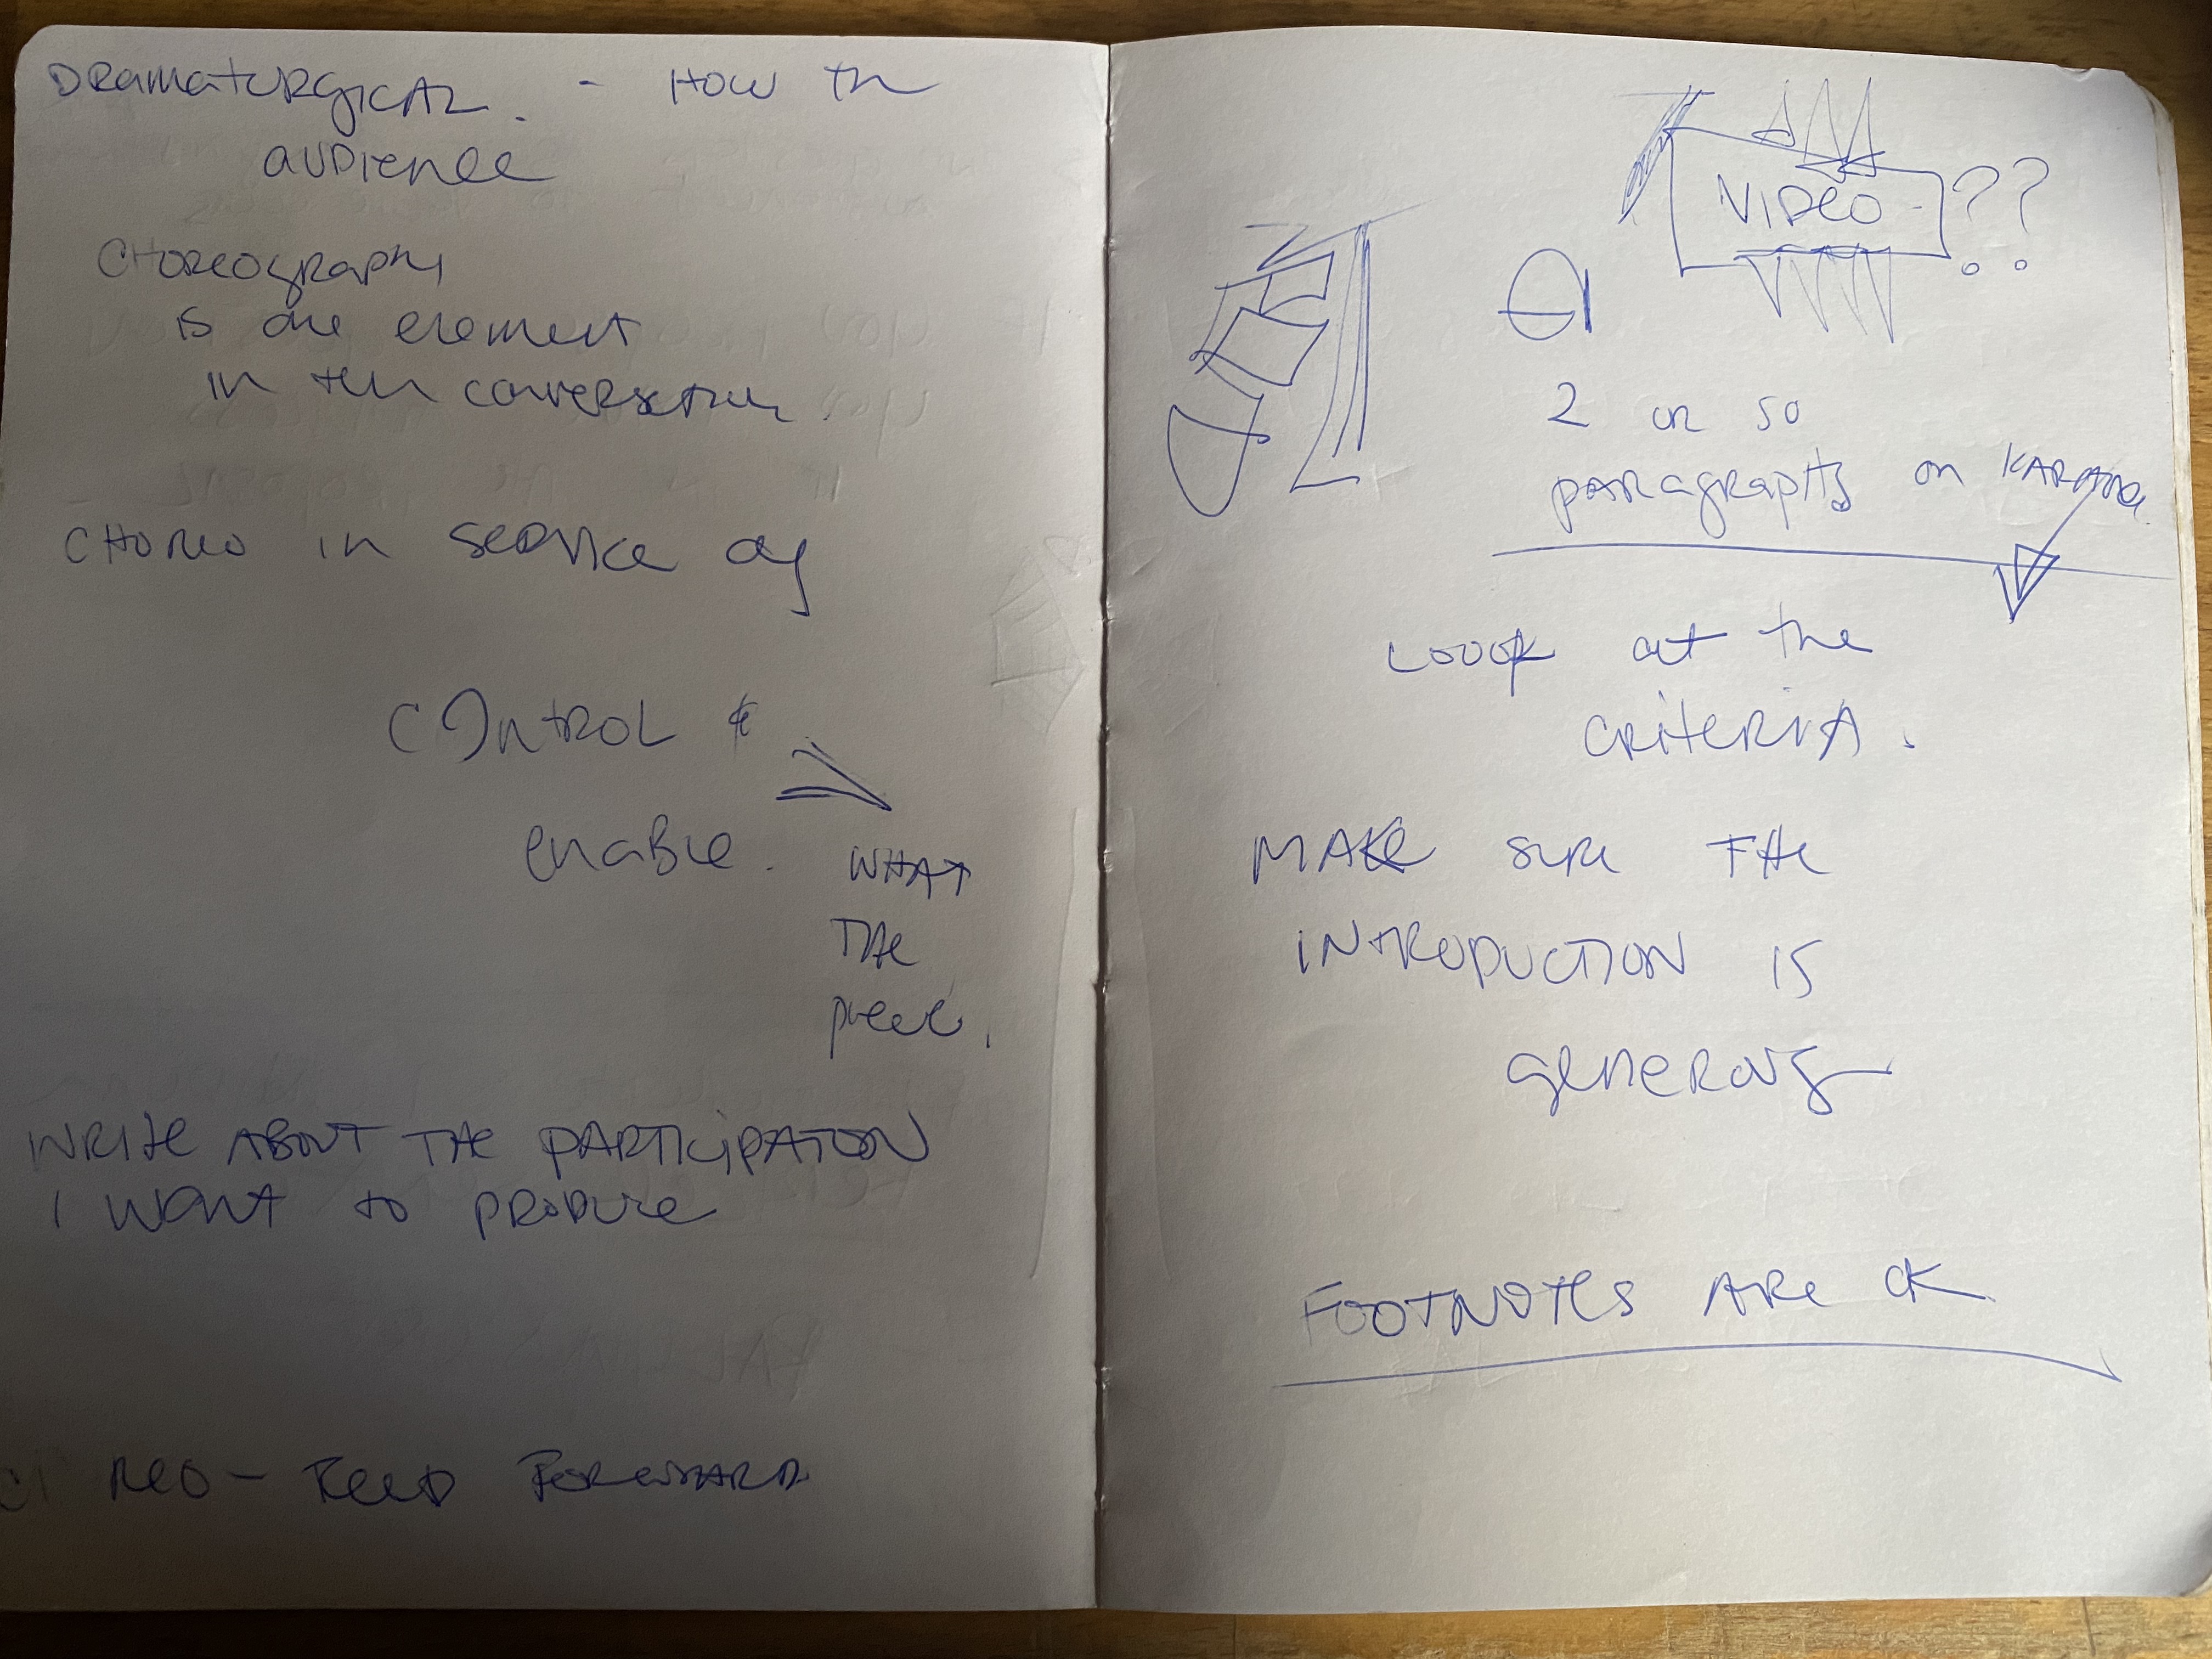 DRAMATURGICAL. - HOW the
AUDIENCE
CHOREOGRAPHY
is one element
in the conversation.
CHOREO in SERVICE of
CONTROL &
enable.
WHAT
THE
piece.
WRITE ABOUT THE PARTICIPATION
I WANT to PRODUCE
REO - FEED FORWARD
VIDEO ??
2 or so
PARAGRAPHS on
LOOOK at the
CRITERIA.
MAKE sure THE
INTRODUCTION IS
generous
FOOTNOTES ARE OK